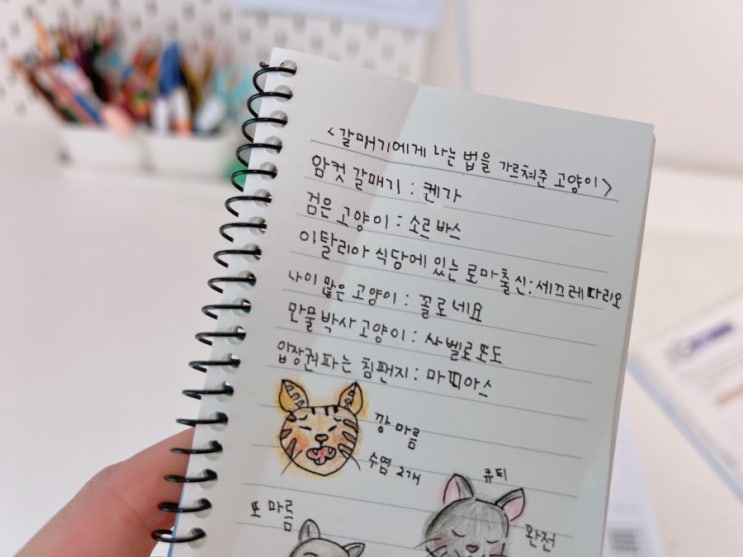 <갈매기에게 나는 법을 가르쳐준 고양이>
암컷 갈매기 : 켄가
검은 고양이 : 소르바스
이탈리아 식당에 있는 로마출신 : 세끄레따리오
나이 많은 고양이 : 꼴로네요
만물박사 고양이 : 사벨로또도
입장권파는 침팬지 : 마띠아스
깡 마름
수염 2개
큐티
또 마름
완전